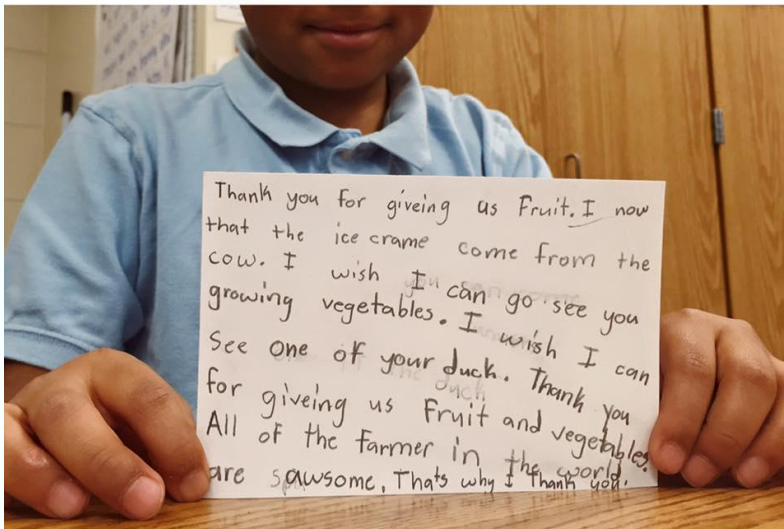 Thank you for giveing us Fruit. I now
that the ice crame come from the
cow. I wish I can go see you
growing vegetables. I wish I can
See one of your duck. Thank you
for giveing us Fruit and vegetables.
All of the farmer in the world
are awsome. Thats why I Thank you.